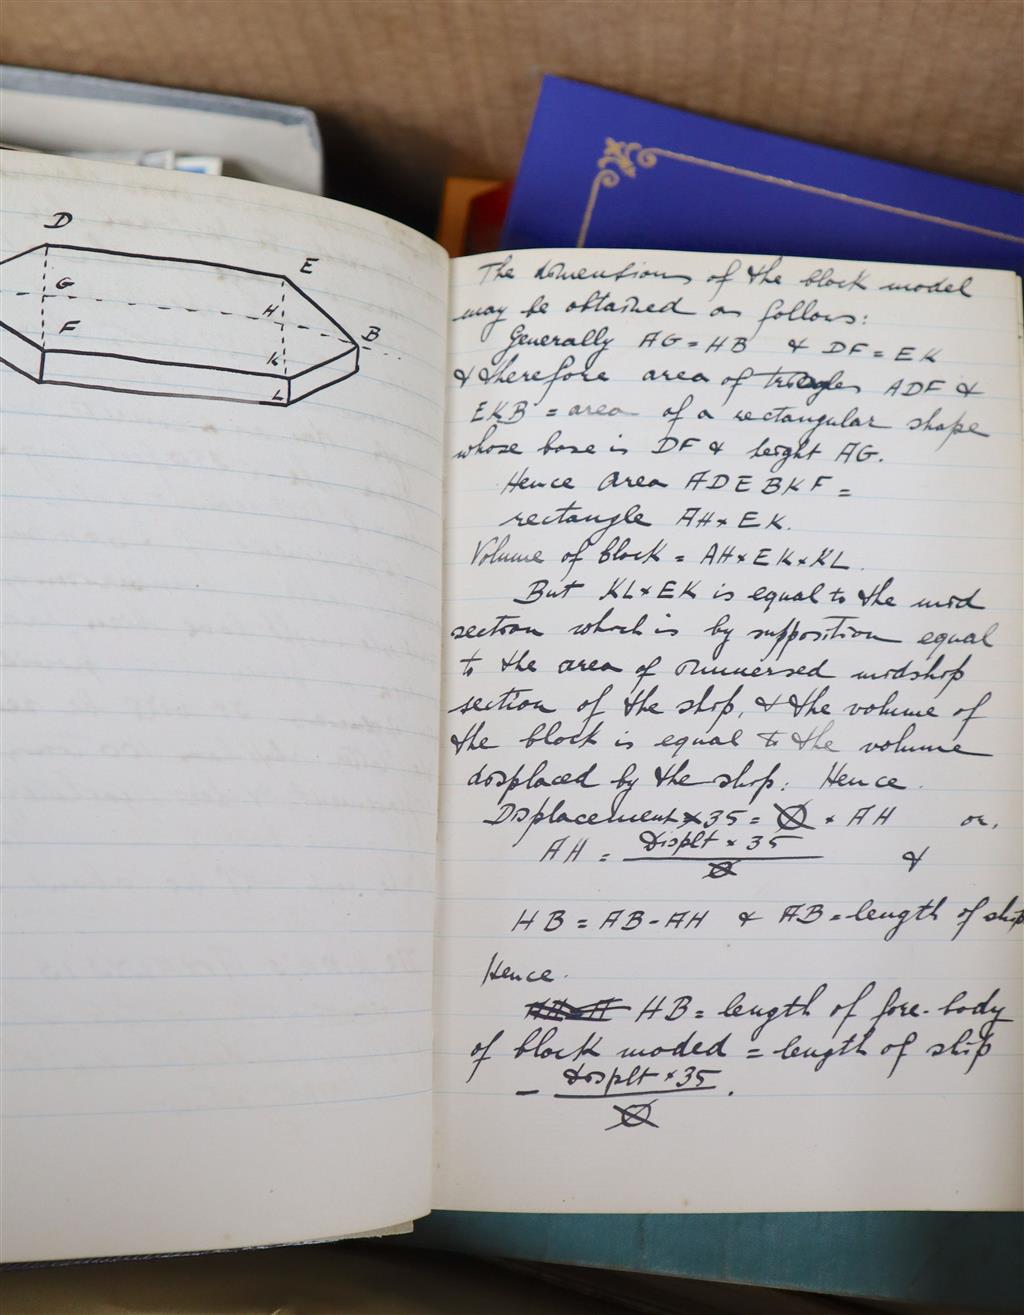 D
E
G
H
B
F
K
L
The dimensions of the block model
may be obtained as follows:
Generally AG = HB & DF = EK
& therefore area of triangles ADF &
EKB = area of a rectangular shape
whose base is DF & height AG.
Hence area ADEBKF =
rectangle AH × EK.
Volume of block = AH × EK × KL.
But KL × EK is equal to the mid
section which is by supposition equal
to the area of immersed midship
section of the ship, & the volume of
the block is equal to the volume
displaced by the ship: Hence.
Displacement × 35 = ⦻ × AH or,
AH = Displt × 35 &
⦻
HB = AB - AH & AB = length of ship
Hence.
HB = length of fore-body
of block moded = length of ship
- Displt × 35.
⦻